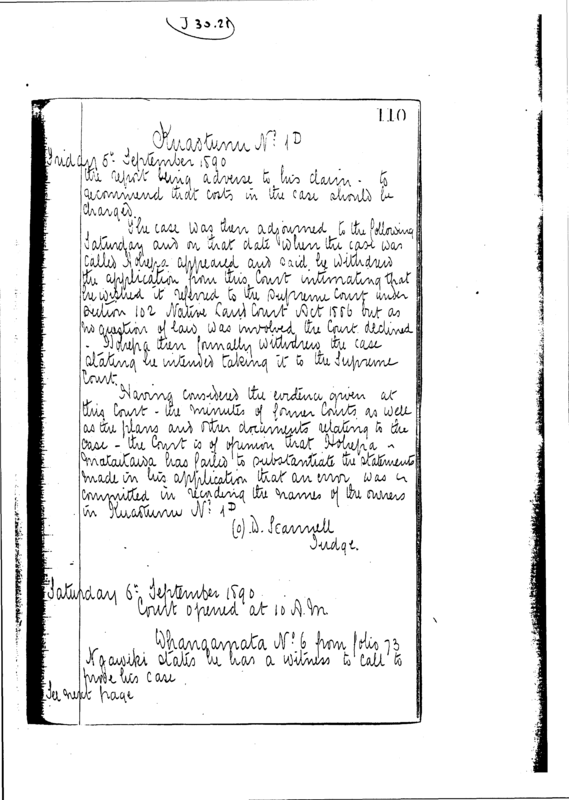 J 30.21
110
Kuaotunu No 1D
Friday 5th September 1890
the report being adverse to his claim - to
recommend that costs in the case should be
charged.
The case was then adjourned to the following
Saturday and on that date when the case was
called Hohepa appeared and said he withdrew
the application from this Court intimating that
he wished it referred to the Supreme Court under
Section 102 Native Land Court Act 1886 but as
no question of law was involved the Court declined
- Hohepa then formally withdrew the case
stating he intended taking it to the Supreme
Court.
Having considered the evidence given at
this Court - the minutes of former Courts as well
as the plans and other documents relating to the
case - the Court is of opinion that Hohepa
Mataitaua has failed to substantiate the statements
made in his application that an error was
committed in recording the names of the owners
in Kuaotunu No 1D
(o) D. Scannell
Judge.
Saturday 6th September 1890
Court opened at 10 A.M
Whangamata No 6 from folio 73
Ngawiki states he has a witness to call to
prove his case
See next page